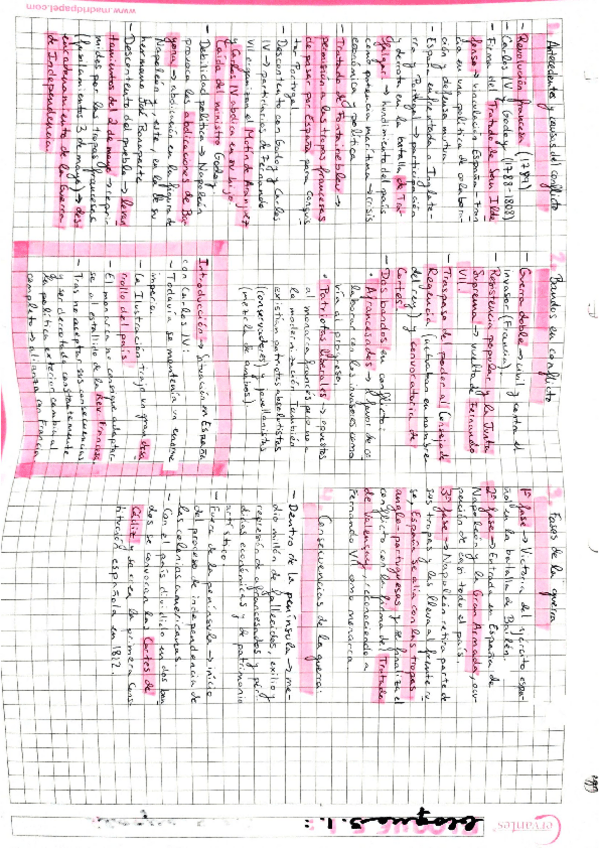 Cervantes
BLOQUE 5.1.:
1. Antecedentes y causas del conflicto
- Revolución francesa (1789)
- Carlos IV y Godoy (1788-1808)
- Firma del Tratado de San Ilde
fonso → vinculación España-Fran
cia en una política de colabora-
ción y defensa mutua
- España enfrentada a Inglate-
rra y Portugal → participación
y derrota en la batalla de Tra
falgar → hundimiento del país
como potencia marítima → crisis
económica y política
- Tratado de Fontainebleau →
permisión a las tropas francesas
de pasar por España para conquis
tar Portugal
- Descontento con Godoy y Carlos
IV → partidarios de Fernando
VII organizan el Motín de Aranjuez
y Carlos IV abdica en su hijo
Caída del ministro Godoy
- Debilidad política → Napoleón
provoca las abdicaciones de Ba
yona → abdicación en la figura de
Napoleón y este, en la de su
hermano José Bonaparte
- Descontento del pueblo → levan
tamientos del 2 de mayo → repri
midos por las tropas francesas
(fusilamientos 3 de mayo) → des
encadenamiento de la Guerra
de Independencia
2. Bandos en conflicto
- Guerra doble → civil y contra el
invasor (Francia)
- Resistencia popular y la Junta
Suprema → vuelta de Fernando
VII
- Traspaso de poder al Consejo de
Regencia (actuaban en nombre
del rey) y convocatoria de
Cortes
- Dos bandos en conflicto:
• Afrancesados → a favor de co
laborar con los invasores como
vía al progreso
• Patriotas liberales → opuestos
al monarca francés pero no a
la modernización (también
existían patriotas absolutistas
(conservadores) y jovellanistas
(mezcla de ambos)
Introducción → Situación en España
con Carlos IV:
- Todavía se mantenía un enorme
imperio.
- La Ilustración trajo un gran desa
rrollo del país
- El monarca no consigue adaptar
se al estallido de la Rev. Francesa
- Tras no aceptar sus consecuencias
y ser derrotado constantemente
la política exterior cambia al
completo → alianza con Francia
Fases de la guerra
1ª fase → Victoria del ejército espa-
ñol en la batalla de Bailén.
2ª fase → Entrada en España de
Napoleón y la Gran Armada, ocu-
pación de casi todo el país.
3ª fase → Napoleón retira parte de
sus tropas y las lleva al frente ru
so, España se alía con las tropas
anglo-portuguesas y se finaliza el
conflicto con la firma del Tratado
de Valençay, reconociendo a
Fernando VII como monarca
Consecuencias de la guerra:
- Dentro de la península → me-
dio millón de fallecidos, exilio y
represión de afrancesados y pér
didas económicas y de patrimonio
artístico.
- Fuera de la península → inicio
del proceso de independencia de
las colonias americanas.
- Con el país dividido en dos ban
dos se convocan las Cortes de
Cádiz y se crea la primera Cons
titución española en 1812.
www.madridpapel.com